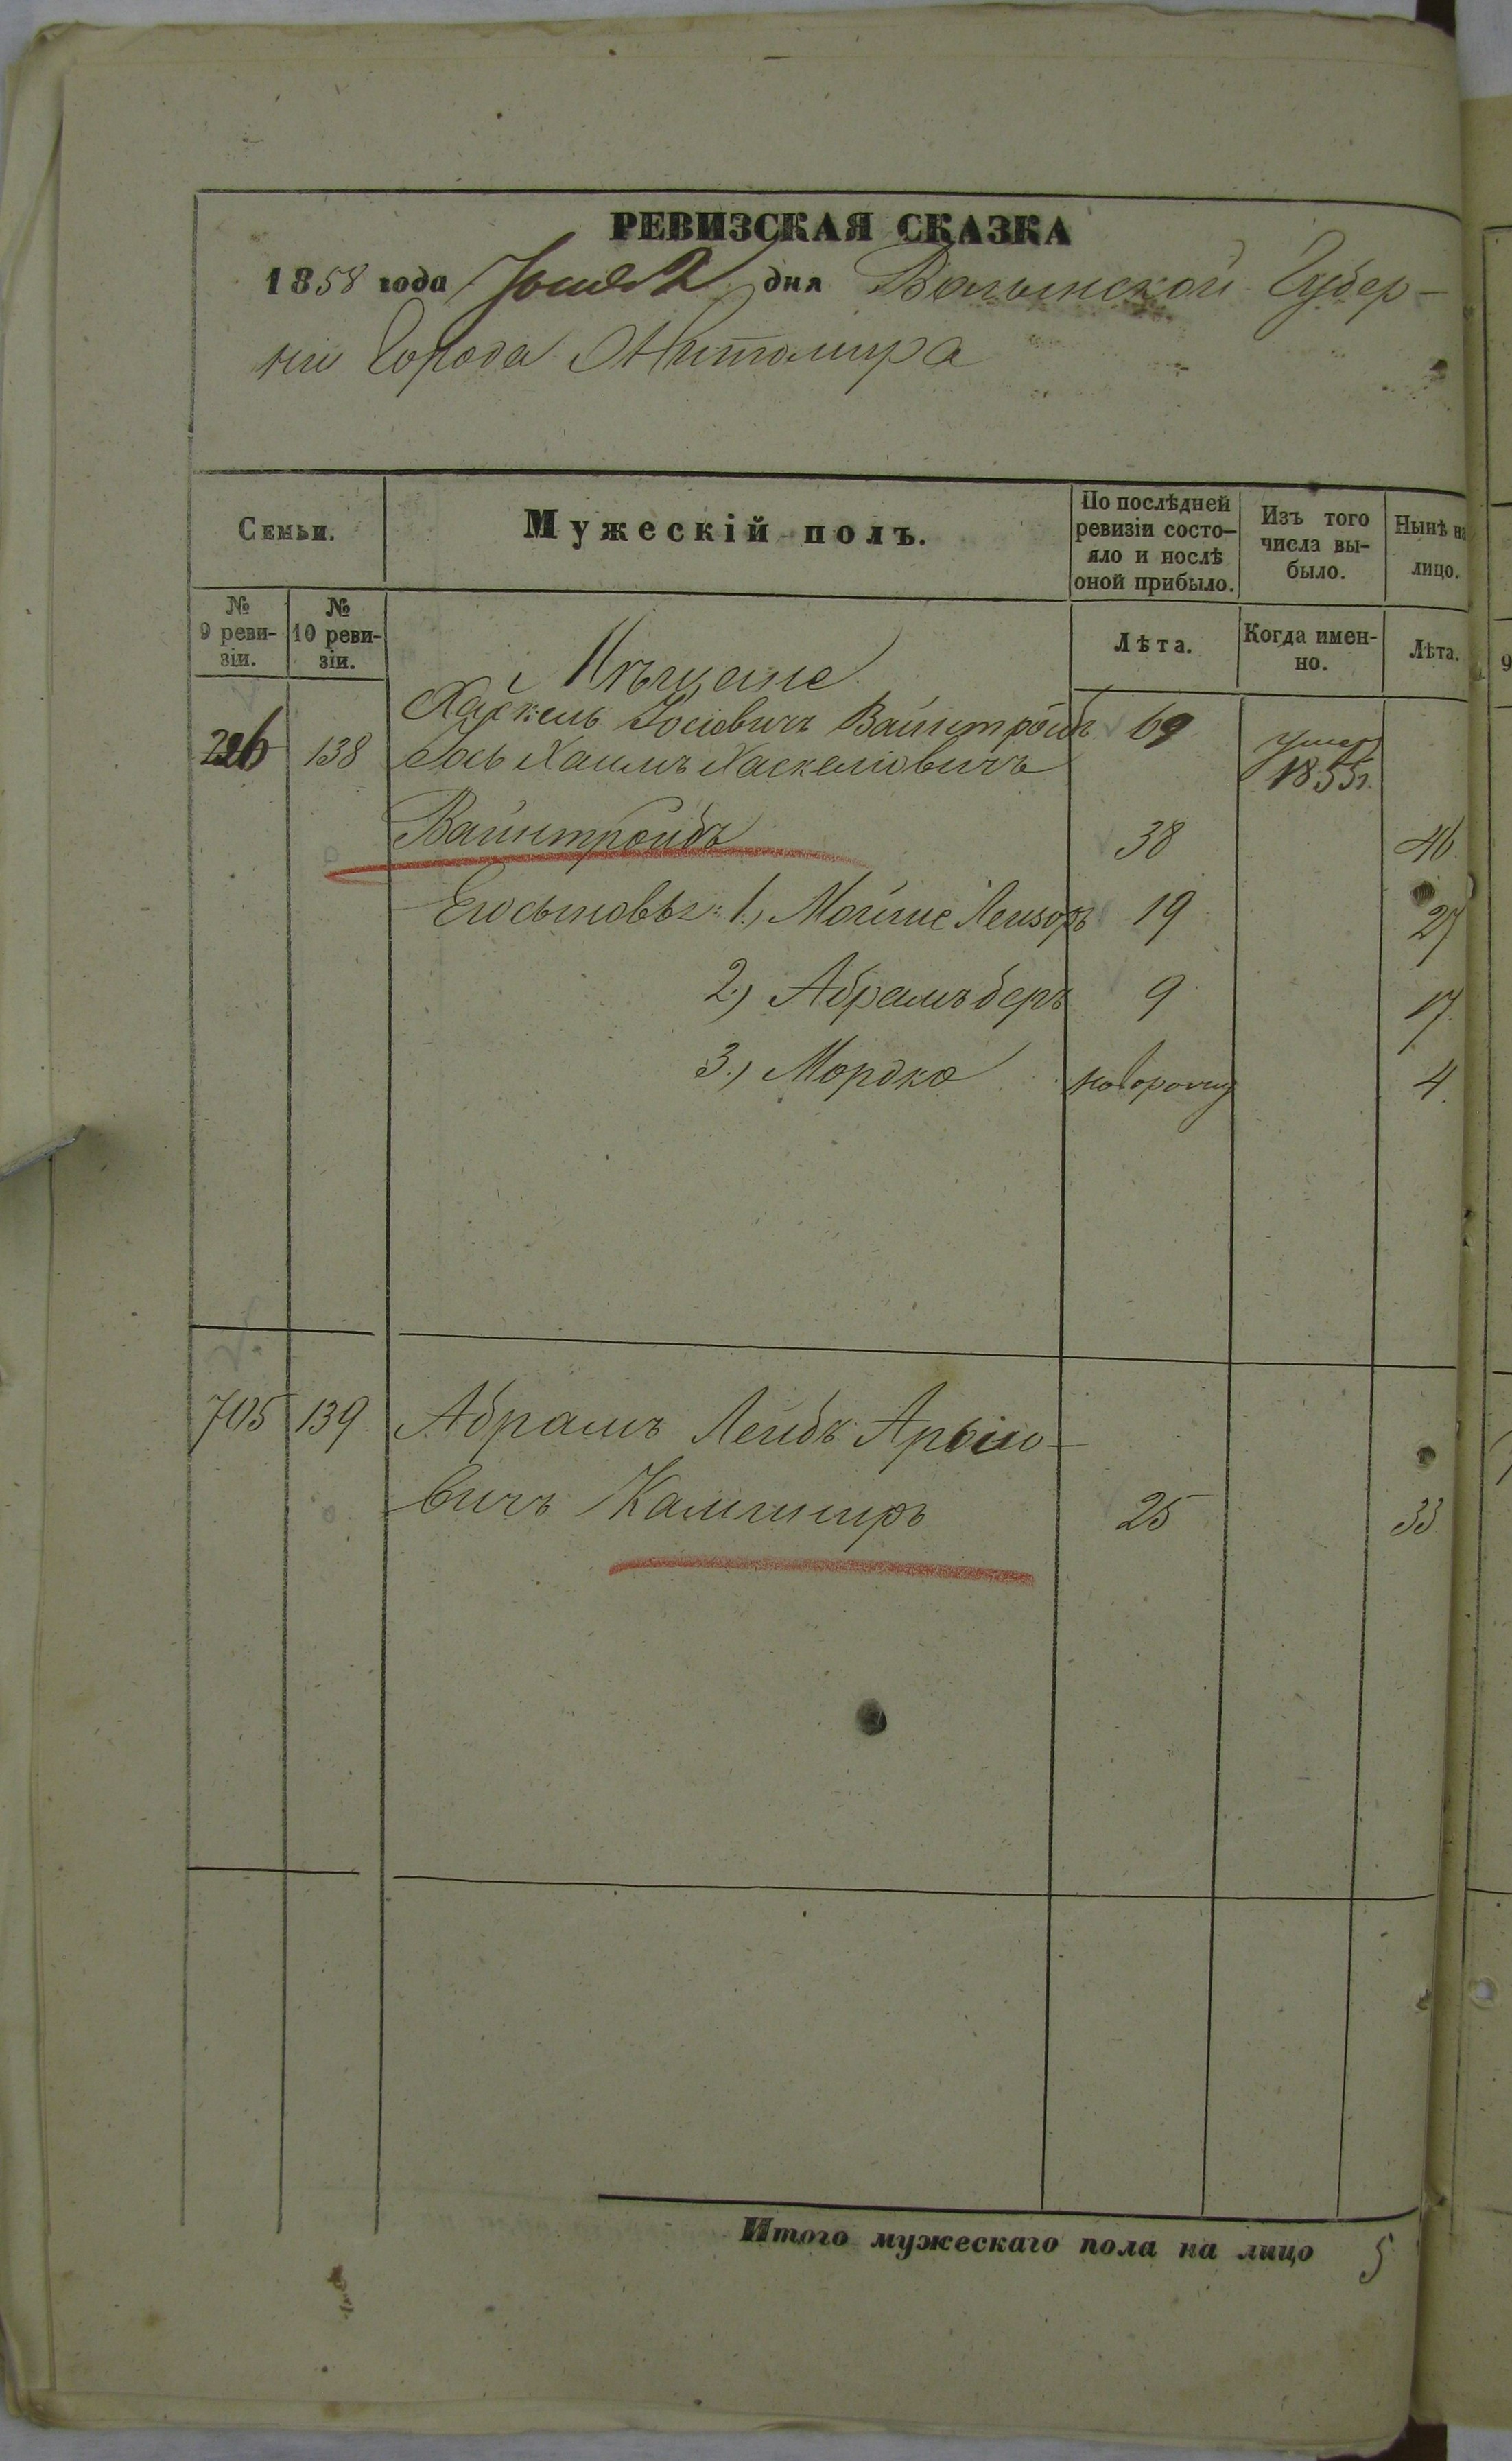 РЕВИЗСКАЯ СКАЗКА
1858 года Іюня 2 дня Волынской Губер-
ніи Города Житомира
Семьи.
Мужескій полъ.
По послѣдней
ревизіи состо-
яло и послѣ
оной прибыло.
Изъ того
числа вы-
было.
Нынѣ на
лицо.
№
9 реви-
зіи.
№
10 реви-
зіи.
Лѣта.
Когда имен-
но.
Лѣта.
Мѣщане
Хаскель Іосіовичъ Вайнтройбъ 69 умер
138 Іось Хаимъ Хаскеліовичъ 1855г.
Вайнтройбъ 38 46
Его сыновья: 1.) Мойше Лейзоръ 19 27
2.) Абрамъ беръ 9 17
3.) Мордко новорожд 4
705 139 Абрамъ Лейбъ Арыіо-
вичъ Камениръ 25 33
Итого мужескаго пола на лицо 5